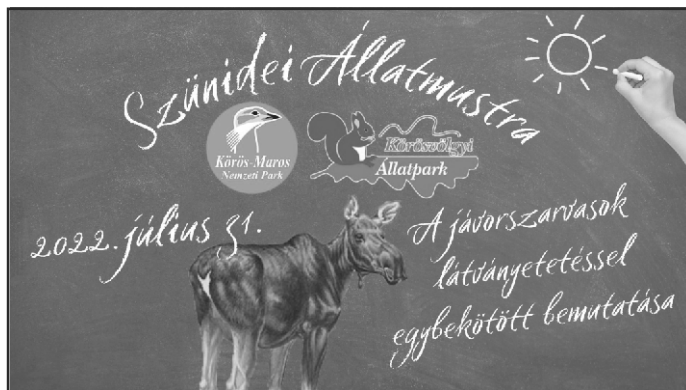 Szünidei Állatmustra
Körös-Maros
Nemzeti Park
Körösvölgyi
Állatpark
2022. július 31.
A jávorszarvasok
látványetetéssel
egybekötött bemutatása